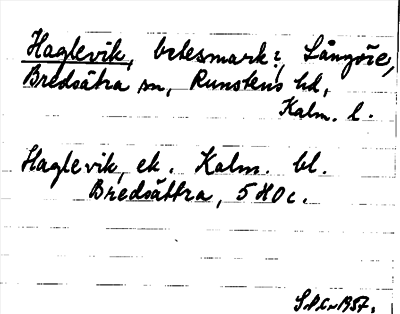 Haglevik, betesmark?, Långöre,
Bredsätra sn, Runstens hd,
Kalm. l.
Haglevik, ek. Kalm. bl.
Bredsättra, 5 H 0 c.
1957.